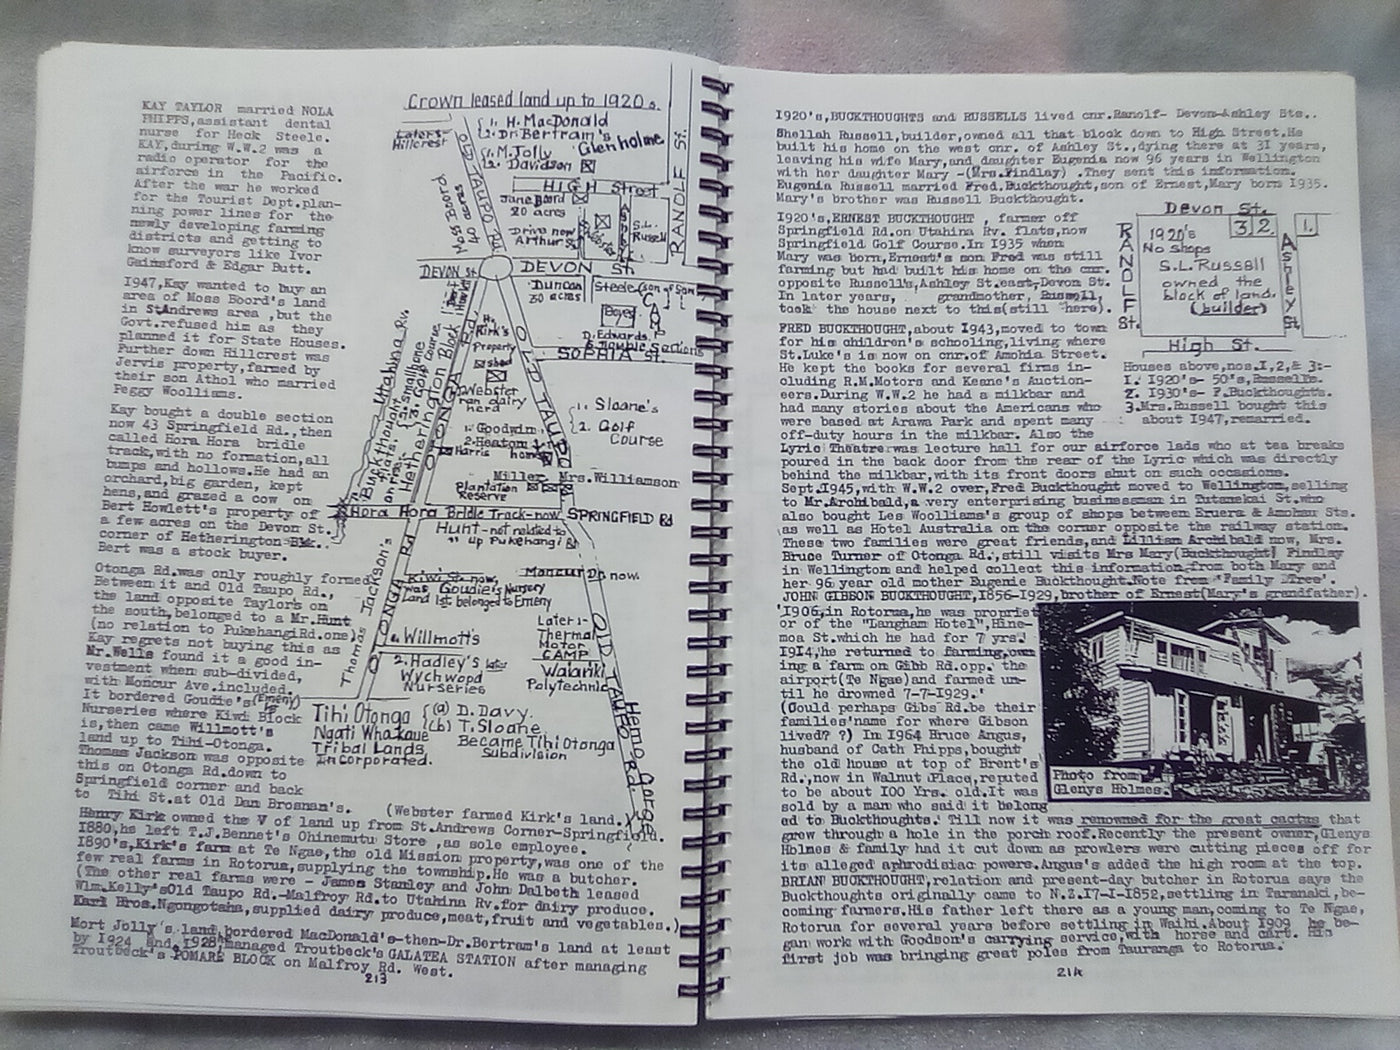 KAY TAYLOR married NOLA
PHIPPS,assistant dental
nurse for Heck Steele.
KAY,during W.W.2 was a
radio operator for the
airforce in the Pacific.
After the war he worked
for the Tourist Dept.plan-
ning power lines for the
newly developing farming
districts and getting to
know surveyors like Ivor
Gainsford & Edgar Butt.
1947,Kay wanted to buy an
area of Moss Boord's land
in StAndrews area ,but the
Govt.refused him as they
planned it for State Houses.
Further down Hillcrest was
Jervis property,farmed by
their son Athol who married
Peggy Woolliams.
Kay bought a double section
now 43 Springfield Rd.,then
called Hora Hora bridle
track,with no formation,all
bumps and hollows.He had an
orchard,big garden, kept
hens,and grazed a cow on
Bert Howlett's property of
a few acres on the Devon St.
corner of Hetherington Blk..
Bert was a stock buyer.
Otonga Rd.was only roughly formed
Between it and Old Taupo Rd.,
the land opposite Taylor's on
the south,belonged to a Mr.Hunt
(no relation to PukehangiRd.one)
Kay regrets not buying this as
Mr.Wells found it a good in-
vestment when sub-divided,
with Moncur Ave.included.
It bordered Goudie's (Emeny)
Nurseries where Kiwi Block
is,then came Willmott's
land up to Tihi-Otonga.
Thomas Jackson was opposite
this on Otonga Rd.down to
Springfield corner and back
to Tihi St.at Old Dan Brosnan's. (Webster farmed Kirk's land.)
Henry Kirk owned the V of land up from St.Andrews Corner-Springfield.
1880,he left T.J.Bennet's Ohinemutu Store ,as sole employee.
1890's,Kirk's farm at Te Ngae,the old Mission property,was one of the
few real farms in Rotorua,supplying the township.He was a butcher.
(The other real farms were - James Stanley and John Dalbeth leased
Wlm.Kelly'sOld Taupo Rd.-Malfroy Rd.to Utahina Rv.for dairy produce.
Karl Bros.Ngongotaha,supplied dairy produce,meat,fruit and vegetables.)
Mort Jolly's land,bordered MacDonald's-then-Dr.Bertram's land at least
by 1924 and 1928,managed Troutbeck's GALATEA STATION after managing
Troutbeck's POMARE BLOCK on Malfroy Rd. West.
213
Crown leased land up to 1920s.
Later:-
Hillcrest
1. H. MacDonald
2. Dr. Bertram's
Glenholme
1. M. Jolly
2. Davidson
HIGH Street
RANOLF St.
OLD TAUPO Rd
Moss Boord
40 acres
Jane Boord
20 acres
Drive now
Arthur St
S.L. Russell
DEVON St.
DEVON St.
Duncan
30 acres
Steele (son of Sam
Boyes
CAMP
D. Edwards
SOPHIA St.
H. Kirk's
Property
shed
Webster
ran dairy
herd
1. Goodwin
2. Heaton
Harris home
1. Sloane's
2. Golf
Course
Miller
Mrs. Williamson
Plantation
Reserve
Utahina Rv.
Hetherington Block
OTONGA Rd
OLD TAUPO
Hora Hora Bridle Track-now SPRINGFIELD Rd
Hunt-not related to
" up Pukehangi Rd.
Kiwi St. now,
was Goudie's Nursery
Land 1st belonged to Emeny
Moncur Dr now.
Thomas Jackson's
OTONGA Rd
1. Willmott's
2. Hadley's later
Wychwood
Nurseries
Later:-
Thermal
Motor
CAMP
Waiariki
Polytechnic
OLD TAUPO Rd
Hemo Gorge
Tihi Otonga
Ngati Whakaue
Tribal Lands
Incorporated.
(a) D. Davy.
(b) T. Sloane
Became Tihi Otonga
Subdivision
1920's,BUCKTHOUGHTS and RUSSELLS lived cnr.Ranolf- Devon-Ashley Sts..
Shellah Russell,builder,owned all that block down to High Street.He
built his home on the west cnr. of Ashley St.,dying there at 31 years,
leaving his wife Mary,and daughter Eugenia now 96 years in Wellington
with her daughter Mary -(Mrs.Findlay) .They sent this information.
Eugenia Russell married Fred.Buckthought,son of Ernest,Mary born 1935.
Mary's brother was Russell Buckthought.
1920's,ERNEST BUCKTHOUGHT , farmer off
Springfield Rd.on Utahina Rv. flats,now
Springfield Golf Course.In 1935 when
Mary was born,Ernest's son Fred was still
farming but had built his home on the cnr.
opposite Russell's,Ashley St.east,Devon St.
In later years, grandmother, Russell,
took the house next to this(still here).
Devon St.
RANOLF St.
1920's
No shops
S.L.Russell
owned the
block of land.
(builder)
3
2
1.
Ashley St.
High St.
Houses above,nos.1,2,& 3:-
1. 1920's- 50's,Russell's.
2. 1930's- F.Buckthought's.
3.Mrs.Russell bought this
about 1947,remarried.
FRED BUCKTHOUGHT,about 1943,moved to town
for his children's schooling,living where
St.Luke's is now on cnr.of Amohia Street.
He kept the books for several firms in-
cluding R.M.Motors and Keane's Auction-
eers.During W.W.2 he had a milkbar and
had many stories about the Americans who
were based at Arawa Park and spent many
off-duty hours in the milkbar. Also the
Lyric Theatre was lecture hall for our airforce lads who at tea breaks
poured in the back door from the rear of the Lyric which was directly
behind the milkbar,with its front doors shut on such occasions.
Sept.1945,with W.W.2 over,Fred Buckthought moved to Wellington,selling
to Mr.Archibald,a very enterprising businessman in Tutanekai St.who
also bought Les Woolliams's group of shops between Eruera & Amohau Sts.
as well as Hotel Australia on the corner opposite the railway station.
These two families were great friends,and Lilliam Archibald now, Mrs.
Bruce Turner of Otonga Rd.,still visits Mrs Mary(Buckthought) Findlay
in Wellington and helped collect this information,from both Mary and
her 96 year old mother Eugenie Buckthought.Note from 'Family Tree'.
JOHN GIBBON BUCKTHOUGHT,1856-1929,brother of Ernest(Mary's grandfather).
'1906,in Rotorua,he was propriet
or of the "Langham Hotel",Hine-
moa St.which he had for 7 yrs.
1914,he returned to farming,own
ing a farm on Gibb Rd.opp. the
airport(Te Ngae)and farmed un-
til he drowned 7-7-1929.'
(Could perhaps Gibs Rd.be their
families'name for where Gibson
lived? ?) In 1964 Bruce Angus,
husband of Cath Phipps,bought
the old house at top of Brent's
Rd.,now in Walnut Place,reputed
to be about 100 Yrs. old.It was
sold by a man who said it belong
ed to Buckthoughts.' Till now it was renowned for the great cactus that
grew through a hole in the porch roof.Recently the present owner,Glenys
Holmes & family had it cut down as prowlers were cutting pieces off for
its alleged aphrodisiac powers.Angus's added the high room at the top.
BRIAN BUCKTHOUGHT,relation and present-day butcher in Rotorua says the
Buckthoughts originally came to N.Z.17-1-1852,settling in Taranaki,be-
coming farmers.His father left there as a young man,coming to Te Ngae,
Rotorua for several years before settling in Waihi.About 1909 he be-
gan work with Goodson's carrying service,with horse and cart. His
first job was bringing great poles from Tauranga to Rotorua.
Photo from
Glenys Holmes.
214